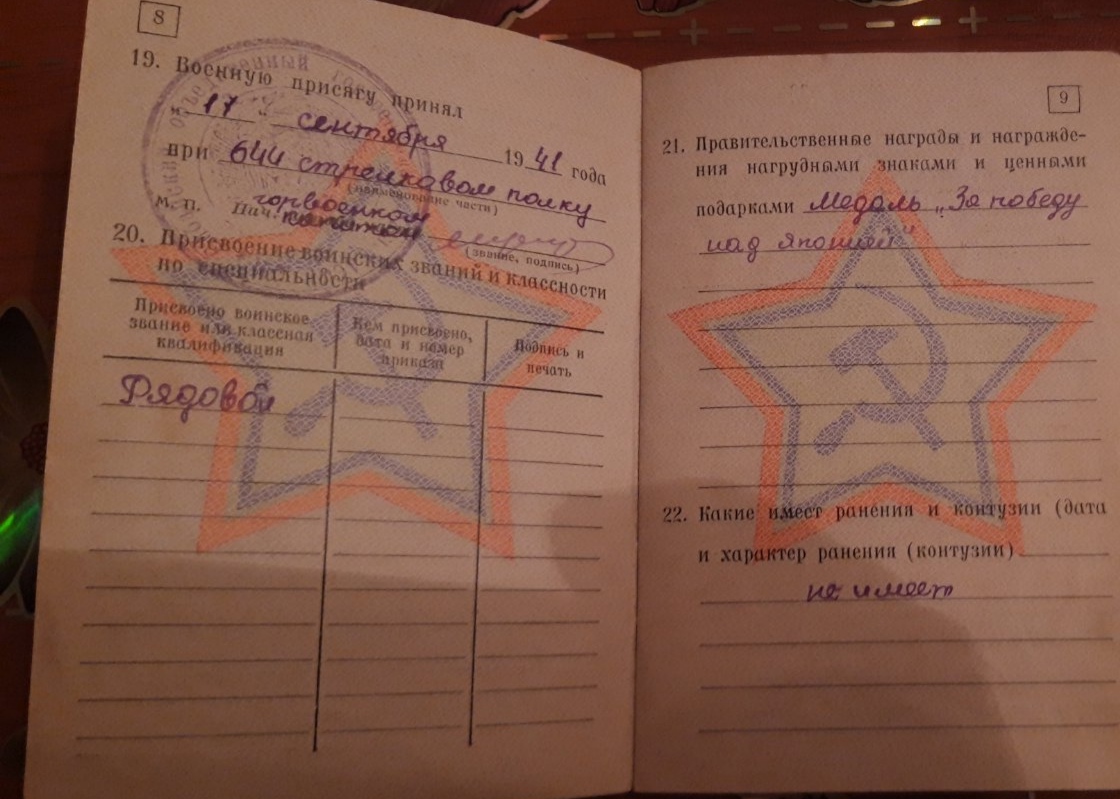 8
19. Военную присягу принял
„ 17 “ сентября 1941 года
при 644 стрелковом полку
(наименование части)
М. П. Нач. горвоенком
капитан
(звание, подпись)
20. Присвоение воинских званий и классности
по специальности
Присвоено воинское
звание или классная
квалификация
Кем присвоено,
дата и номер
приказа
Подпись и
печать
Рядовой
9
21. Правительственные награды и награжде-
ния нагрудными знаками и ценными
подарками Медаль „За победу
над Японией"
22. Какие имеет ранения и контузии (дата
и характер ранения (контузии)
не имеет